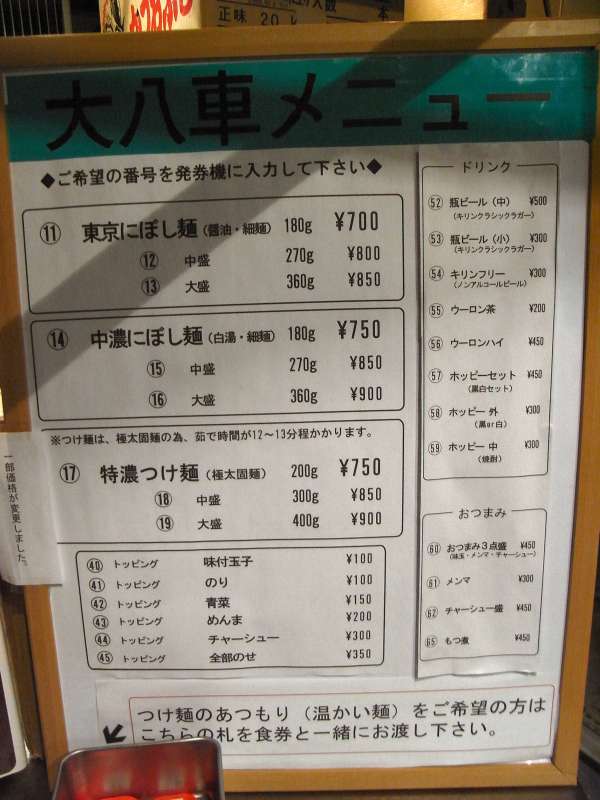 正味 20
大八車メニュー
◆ご希望の番号を発券機に入力して下さい◆
⑪ 東京にぼし麺（醤油・細麺） 180g ¥700
⑫ 中盛 270g ¥800
⑬ 大盛 360g ¥850
⑭ 中濃にぼし麺（白湯・細麺） 180g ¥750
⑮ 中盛 270g ¥850
⑯ 大盛 360g ¥900
※つけ麺は、極太固麺の為、茹で時間が12～13分程かかります。
⑰ 特濃つけ麺（極太固麺） 200g ¥750
⑱ 中盛 300g ¥850
⑲ 大盛 400g ¥900
㊵ トッピング 味付玉子 ¥100
㊶ トッピング のり ¥100
㊷ トッピング 青菜 ¥150
㊸ トッピング めんま ¥200
㊹ トッピング チャーシュー ¥300
㊺ トッピング 全部のせ ¥350
ドリンク
52 瓶ビール（中） ¥500
（キリンクラシックラガー）
53 瓶ビール（小） ¥300
（キリンクラシックラガー）
54 キリンフリー ¥300
（ノンアルコールビール）
55 ウーロン茶 ¥200
56 ウーロンハイ ¥450
57 ホッピーセット ¥450
（黒白セット）
58 ホッピー 外 ¥300
（黒or白）
59 ホッピー 中 ¥300
（焼酎）
おつまみ
60 おつまみ３点盛 ¥450
（味玉・メンマ・チャーシュー）
61 メンマ ¥300
62 チャーシュー盛 ¥450
65 もつ煮 ¥450
つけ麺のあつもり（温かい麺）をご希望の方は
こちらの札を食券と一緒にお渡し下さい。
一部価格が変更しました。